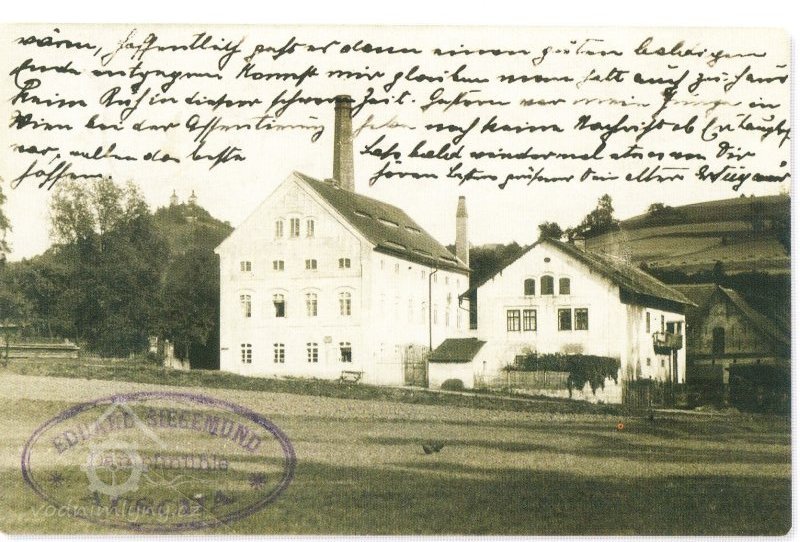 wären, hoffentlich geht es dann einen guten baldigen
Ende entgegen! Kannst mir glauben man hat auch zu Haus
keine Ruh in dieser schweren Zeit. Gestern war mein Junge in
Wien bei der Assentierung habe noch keine Nachricht ob er tauglich
war, wollen das beste
hoffen.
Lass bald wieder mal etwas von Dir
hören
Dein alter
EDUARD SIEGEMUND
vodnimlyny.cz